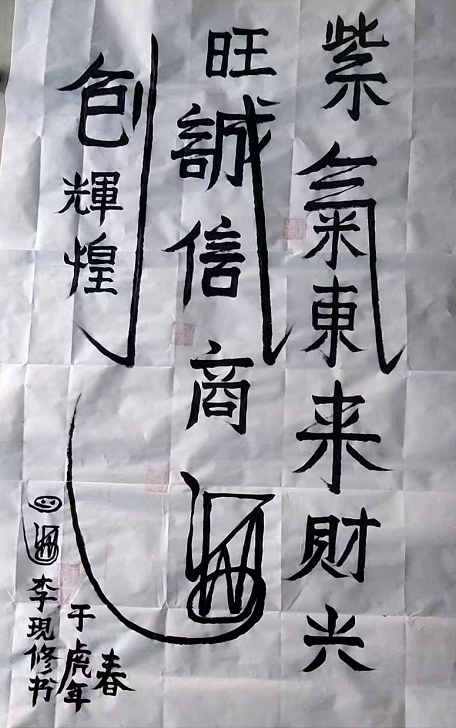 紫氣東来財兴
旺誠信商
創輝煌
李現修书
于虎年
春